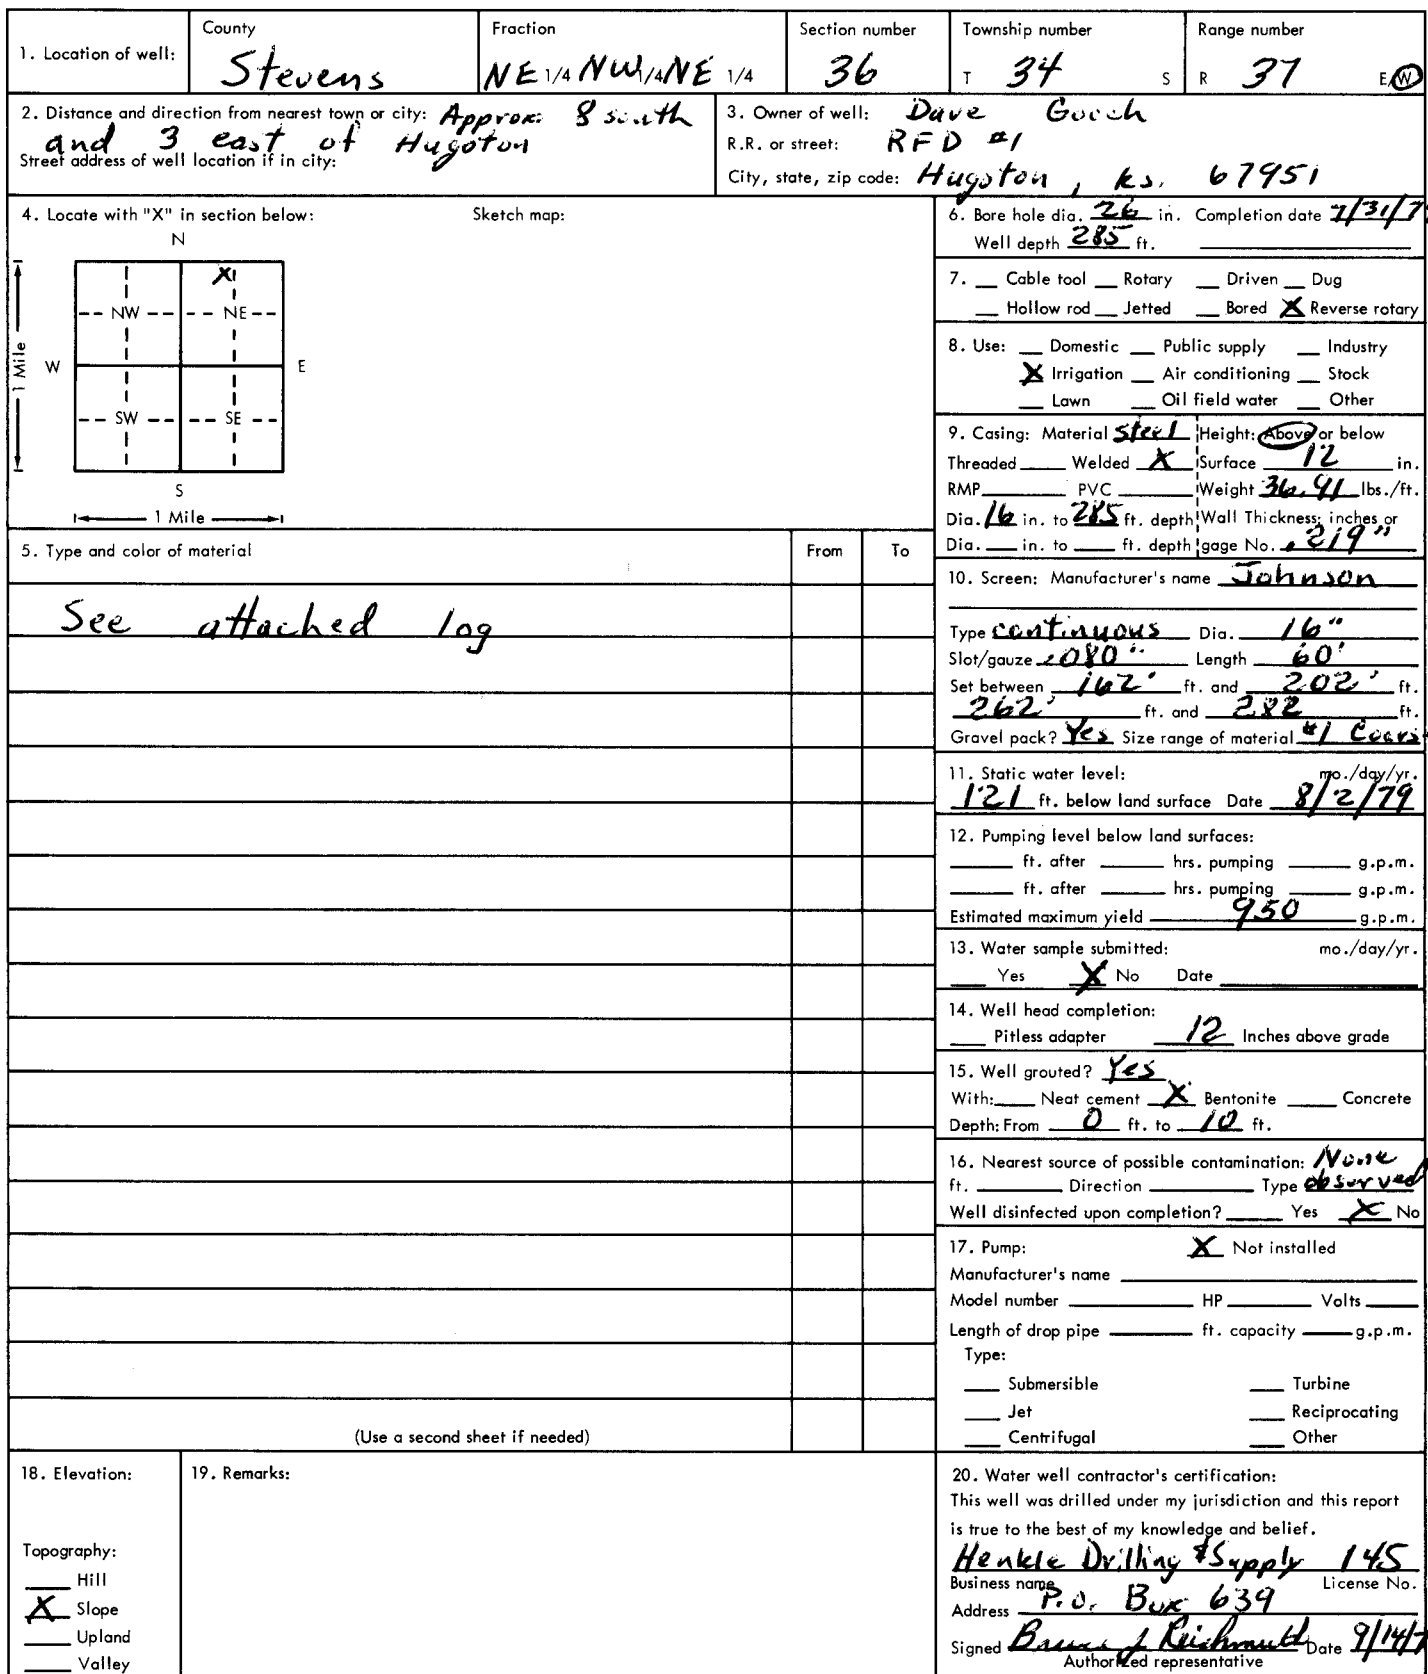 1. Location of well: County Stevens Fraction NE 1/4 NW 1/4 NE 1/4 Section number 36 Township number T 34 S Range number R 37 E/W
2. Distance and direction from nearest town or city: Approx. 8 south
and 3 east of Hugoton
Street address of well location if in city:
3. Owner of well: Dave Gooch
R.R. or street: RFD #1
City, state, zip code: Hugoton, Ks. 67951
4. Locate with "X" in section below: Sketch map:
N
X
NW NE
W E
1 Mile
SW SE
S
1 Mile
5. Type and color of material From To
See attached log
(Use a second sheet if needed)
6. Bore hole dia. 26 in. Completion date 7/31/7
Well depth 285 ft.
7. __ Cable tool __ Rotary __ Driven __ Dug
__ Hollow rod __ Jetted __ Bored X Reverse rotary
8. Use: __ Domestic __ Public supply __ Industry
X Irrigation __ Air conditioning __ Stock
__ Lawn __ Oil field water __ Other
9. Casing: Material Steel Height: Above or below
Threaded ___ Welded X Surface 12 in.
RMP ___ PVC ___ Weight 36.91 lbs./ft.
Dia. 16 in. to 285 ft. depth Wall Thickness: inches or
Dia. ___ in. to ___ ft. depth gage No. .219"
10. Screen: Manufacturer's name Johnson
Type continuous Dia. 16"
Slot/gauze .080" Length 60'
Set between 162' ft. and 202' ft.
262' ft. and 282 ft.
Gravel pack? Yes Size range of material #1 Coars
11. Static water level: mo./day/yr.
121 ft. below land surface Date 8/2/79
12. Pumping level below land surfaces:
___ ft. after ___ hrs. pumping ___ g.p.m.
___ ft. after ___ hrs. pumping ___ g.p.m.
Estimated maximum yield 950 g.p.m.
13. Water sample submitted: mo./day/yr.
___ Yes X No Date ___
14. Well head completion:
___ Pitless adapter 12 Inches above grade
15. Well grouted? Yes
With: ___ Neat cement X Bentonite ___ Concrete
Depth: From 0 ft. to 10 ft.
16. Nearest source of possible contamination: None
ft. ___ Direction ___ Type observed
Well disinfected upon completion? ___ Yes X No
17. Pump: X Not installed
Manufacturer's name ___
Model number ___ HP ___ Volts ___
Length of drop pipe ___ ft. capacity ___ g.p.m.
Type:
___ Submersible ___ Turbine
___ Jet ___ Reciprocating
___ Centrifugal ___ Other
18. Elevation:
Topography:
___ Hill
X Slope
___ Upland
___ Valley
19. Remarks:
20. Water well contractor's certification:
This well was drilled under my jurisdiction and this report
is true to the best of my knowledge and belief.
Henkle Drilling & Supply 145
Business name License No.
Address P.O. Box 639
Signed Bruce J Reichmuth Date 9/14/7
Authorized representative